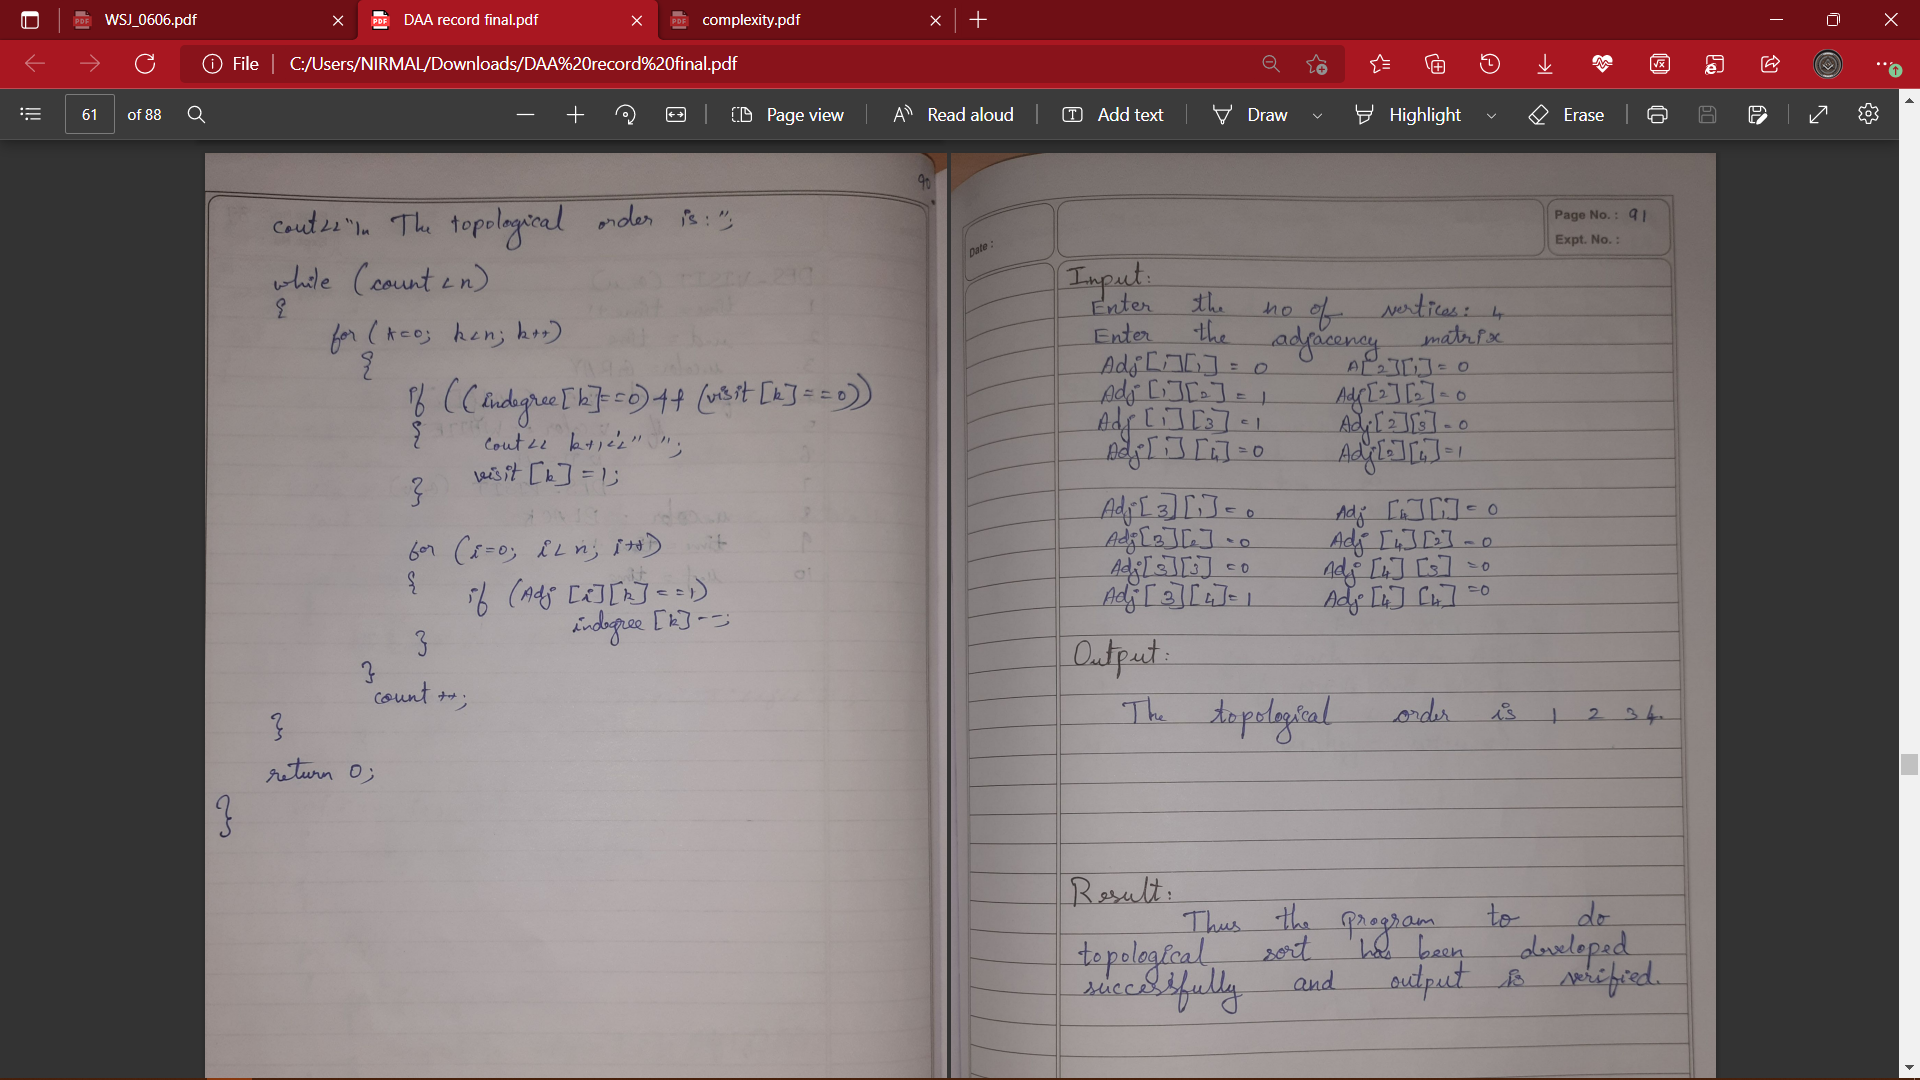 WSJ_0606.pdf
DAA record final.pdf
complexity.pdf
File
C:/Users/NIRMAL/Downloads/DAA%20record%20final.pdf
61 of 88
Page view
Read aloud
Add text
Draw
Highlight
Erase
90
cout<<"\n The topological order is:";
while (count < n)
{
for (k=0; k<n; k++)
{
if ((indegree[k]==0) && (visit[k]==0))
{
cout<< k+1<<" ";
visit[k]=1;
}
for (i=0; i<n; i++)
{
if (Adj [i][k]==1)
indegree[k]--;
}
}
count++;
}
return 0;
}
Page No.: 91
Expt. No.:
Date:
Input:
Enter the no of vertices: 4
Enter the adjacency matrix
Adj[1][1]=0 A[2][1]=0
Adj[1][2]=1 Adj[2][2]=0
Adj[1][3]=1 Adj[2][3]=0
Adj[1][4]=0 Adj[2][4]=1
Adj[3][1]=0 Adj [4][1]=0
Adj[3][2]=0 Adj [4][2]=0
Adj[3][3]=0 Adj [4][3]=0
Adj[3][4]=1 Adj[4][4]=0
Output:
The topological order is 1 2 3 4.
Result:
Thus the program to do
topological sort has been developed
successfully and output is verified.